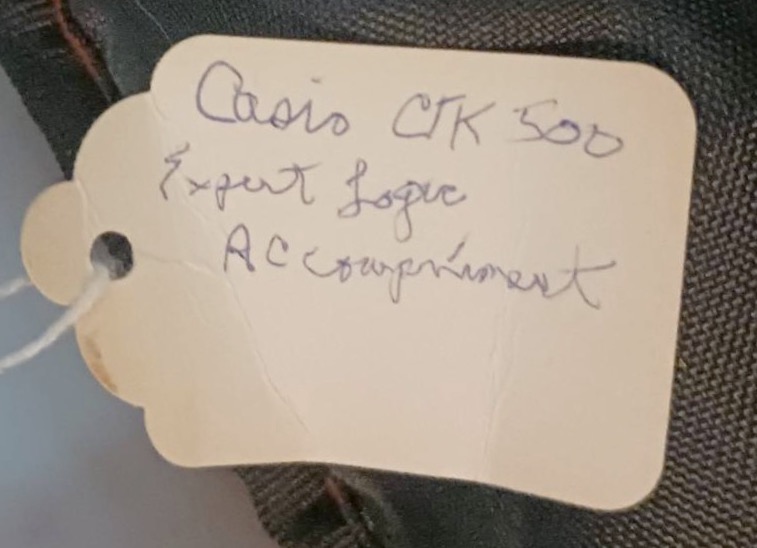 Casio CTK 500
Expert Logic
ACcompniment